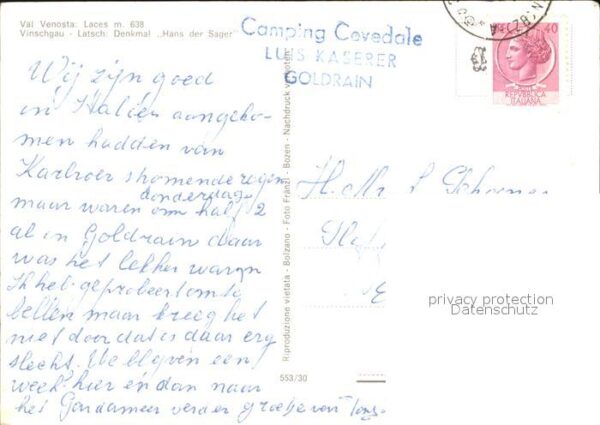 Val Venosta: Laces m. 638
Vinschgau - Latsch: Denkmal „Hans der Sager"
Camping Cevedale
LUIS KASERER
GOLDRAIN
40
REPVBBLICA
ITALIANA
Wij zijn goed
in Italien aangeko-
men hadden van
Karlsroer stromende regen
donderdag
maar waren om half 2
al in Goldrain daar
was het lekker warm
Ik heb geprobeert om te
bellen maar kreeg het
niet door dat is daar erg
slecht. We blijven een
week hier en dan naar
het Gardameer verder groetjes van
Riproduzione vietata - Bolzano - Foto Fränzl - Bozen - Nachdruck verboten
553/30
privacy protection
Datenschutz